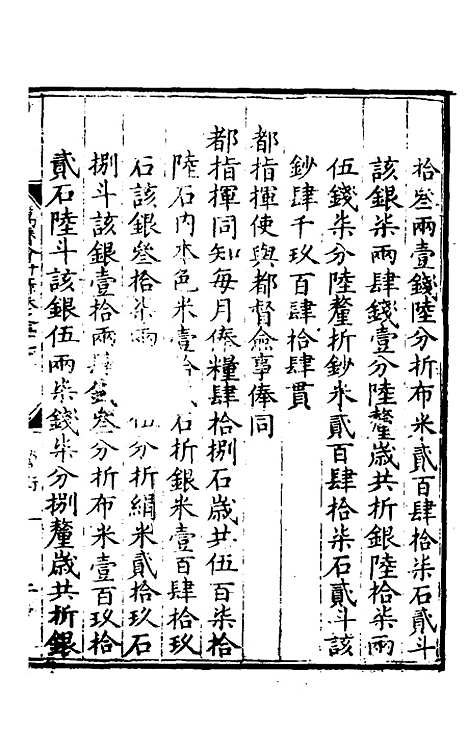 拾叁兩壹錢陸分折布米貳百肆拾柒石貳斗
該銀柒兩肆錢壹分陸釐歲共折銀陸拾柒兩
伍錢柒分陸釐折鈔米貳百肆拾柒石貳斗該
鈔肆千玖百肆拾肆貫
都指揮使與都督僉事俸同
都指揮同知每月俸糧肆拾捌石歲共伍百柒拾
陸石內本色米壹拾石折銀米壹百肆拾玖
石該銀叁拾柒兩伍分折絹米貳拾玖石
捌斗該銀壹拾兩錢叁分折布米壹百玖拾
貳石陸斗該銀伍兩柒錢柒分捌釐歲共折銀